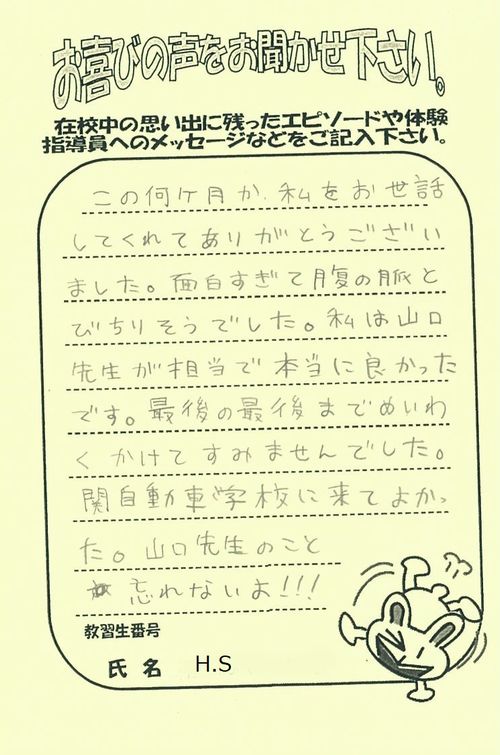 お喜びの声をお聞かせ下さい。
在校中の思い出に残ったエピソードや体験
指導員へのメッセージなどをご記入下さい。
この何ヶ月か、私をお世話
してくれてありがとうござい
ました。面白すぎて腹の脈と
びちりそうでした。私は山口
先生が担当で本当に良かった
です。最後の最後までめいわ
くかけてすみませんでした。
関自動車学校に来てよかっ
た。山口先生のこと
忘れないよ!!!
教習生番号
氏名 H.S